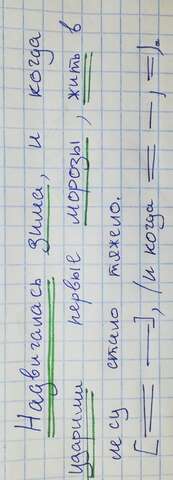 Надвигалась зима, и когда
ударили первые морозы, жить в
лесу стало тяжело.
[═ —], (и когда ═ —, ═).